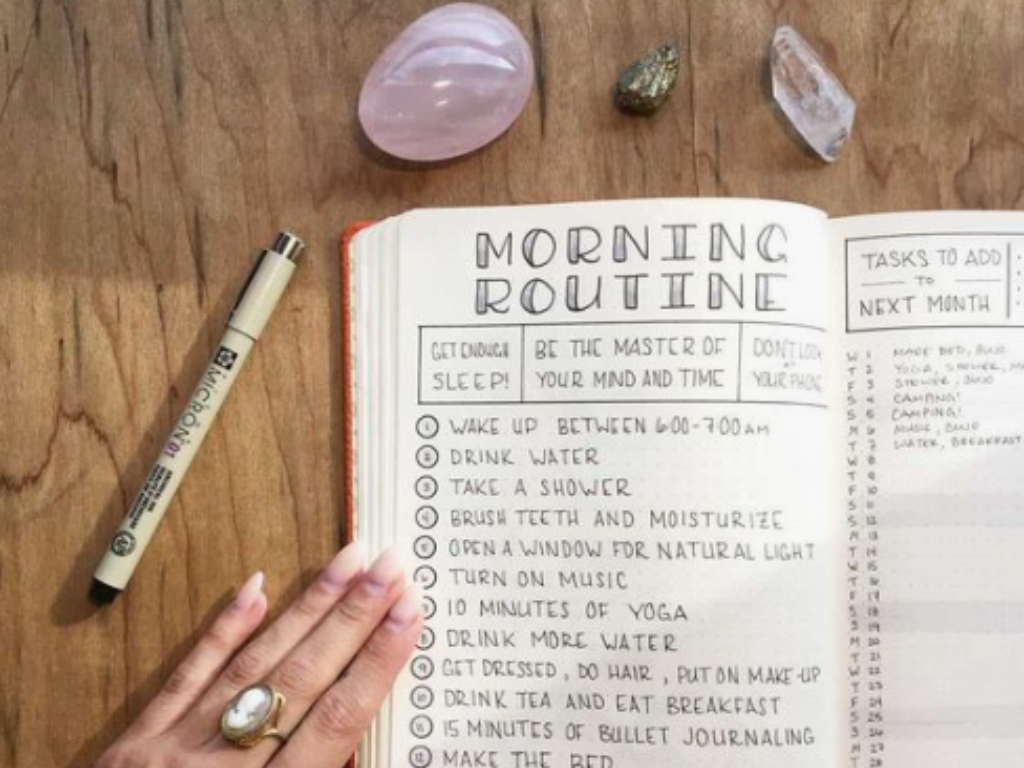 MORNING
ROUTINE
GET ENOUGH
SLEEP!
BE THE MASTER OF
YOUR MIND AND TIME
DON'T LOOK
YOUR PHONE
1 WAKE UP BETWEEN 6:00-7:00 AM
2 DRINK WATER
3 TAKE A SHOWER
4 BRUSH TEETH AND MOISTURIZE
5 OPEN A WINDOW FOR NATURAL LIGHT
6 TURN ON MUSIC
10 MINUTES OF YOGA
8 DRINK MORE WATER
9 GET DRESSED, DO HAIR, PUT ON MAKE-UP
10 DRINK TEA AND EAT BREAKFAST
11 15 MINUTES OF BULLET JOURNALING
12 MAKE THE BED
TASKS TO ADD
TO
NEXT MONTH
W 1 MAKE BED, BUJO
T 2 YOGA, SHOWER,
F 3 SHOWER, BUJO
S 4 CAMPING!
S 5 CAMPING!
M 6 MUSIC, BUJO
T 7 WATER, BREAKFAST
W 8
T 9
F 10
S 11
S 12
M 13
T 14
W 15
T 16
F 17
S 18
S 19
M 20
T 21
W 22
T 23
F 24
S 25
S 26
M 27
T 28
MICRON 01